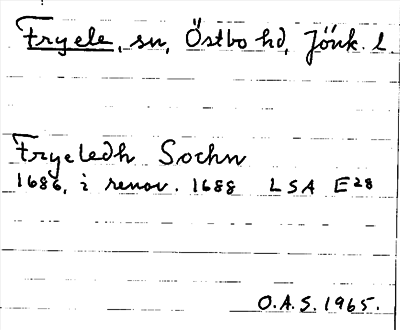 Fryele, sn, Östbo hd, Jönk. l
Fryeledh Sochn
1686, i renov. 1688 LSA E28
O.A.S. 1965.